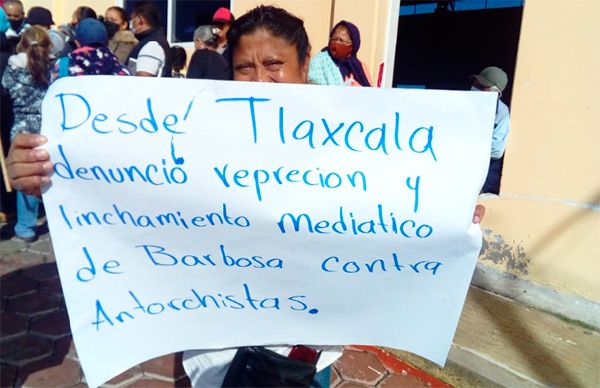 Desde! Tlaxcala
denunció reprecion y
linchamiento mediatico
de Barbosa contra
Antorchistas.